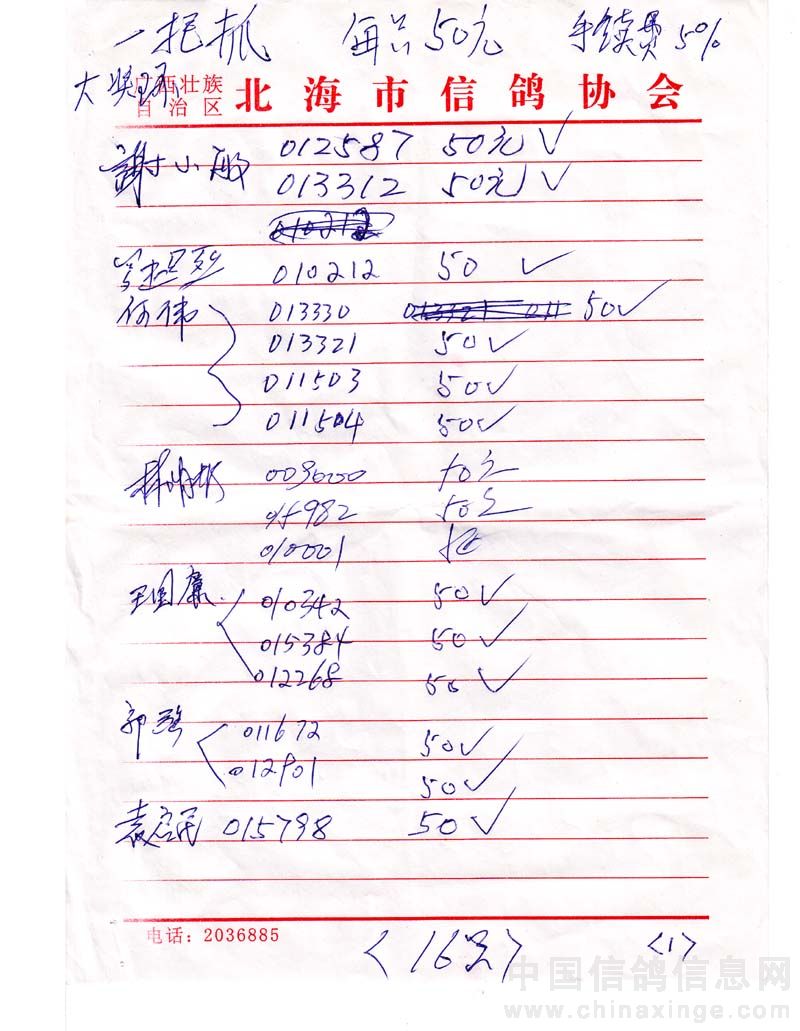 一把抓 每只50元 手续费5%
大奖环
广西壮族自治区 北海市信鸽协会
謝小敏 012587 50元 ✓
013312 50元 ✓
010212
010212 50 ✓
何伟 013330 50 ✓
013321 50 ✓
011503 50 ✓
011504 50 ✓
50元
982 50元
010001
王国廉 010342 50 ✓
015384 50 ✓
012268 50 ✓
郭强 011672 50 ✓
012901 50 ✓
袁启民 015798 50 ✓
电话：2036885
<16只> <1>
中国信鸽信息网
www.chinaxinge.com